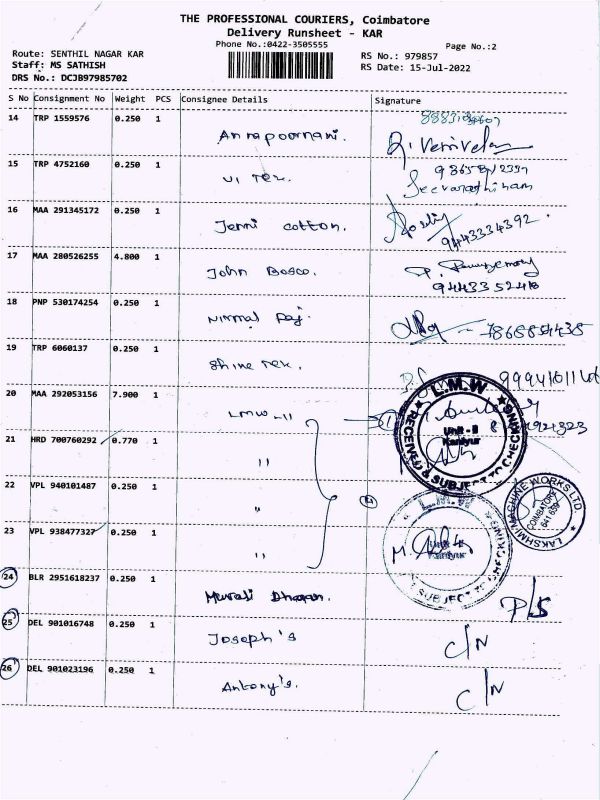 THE PROFESSIONAL COURIERS, Coimbatore
Delivery Runsheet - KAR
Phone No.:0422-3505555
Page No.:2
Route: SENTHIL NAGAR KAR
Staff: MS SATHISH
DRS No.: DCJB97985702
RS No.: 979857
RS Date: 15-Jul-2022
S No Consignment No Weight PCS Consignee Details Signature
14 TRP 1559576 0.250 1 Annapoornani.
15 TRP 4752160 0.250 1 VI Tex.
16 MAA 291345172 0.250 1 Jenni cotton. 9443334392.
17 MAA 280526255 4.800 1 John Bosco.
9443352418
18 PNP 530174254 0.250 1 Nirmal Raj.
19 TRP 6060137 0.250 1 Shine Tex.
20 MAA 292053156 7.900 1 LMW-II
21 HRD 700760292 0.770 1 "
22 VPL 940101487 0.250 1 "
23 VPL 938477327 0.250 1 "
L.M.W
Unit - II
Kaniyur
RECEIVED & SUBJECT TO CHECKING
L.M.W
Kaniyur
SUBJECT TO CHECKING
LAKSHMI MACHINE WORKS LTD.
COIMBATORE
641 659
24 BLR 2951618237 0.250 1 Murali Dharan. P/S
25 DEL 901016748 0.250 1 Joseph's C/N
26 DEL 901023196 0.250 1 Antony's. C/N